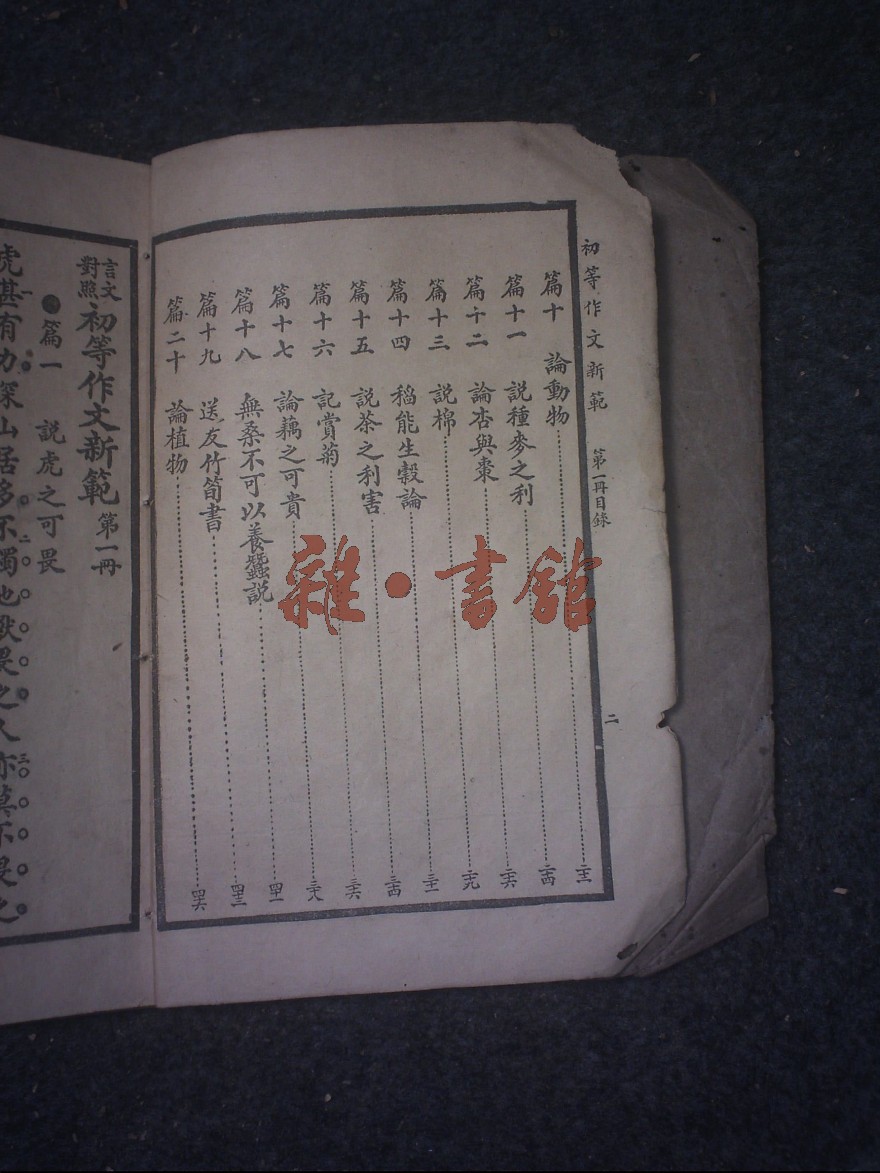 初等作文新範 第一冊目錄 二
篇十 論動物
篇十一 說種麥之利
篇十二 論杏與棗
篇十三 說棉
篇十四 稻能生穀論
篇十五 說茶之利害
篇十六 記賞菊
篇十七 論藕之可貴
篇十八 無桑不可以養蠶說
篇十九 送友竹筍書
篇二十 論植物
雜·書館
言文對照 初等作文新範 第一冊
篇一 說虎之可畏
虎甚有力深山居多不獨也獸畏之人亦莫不畏之